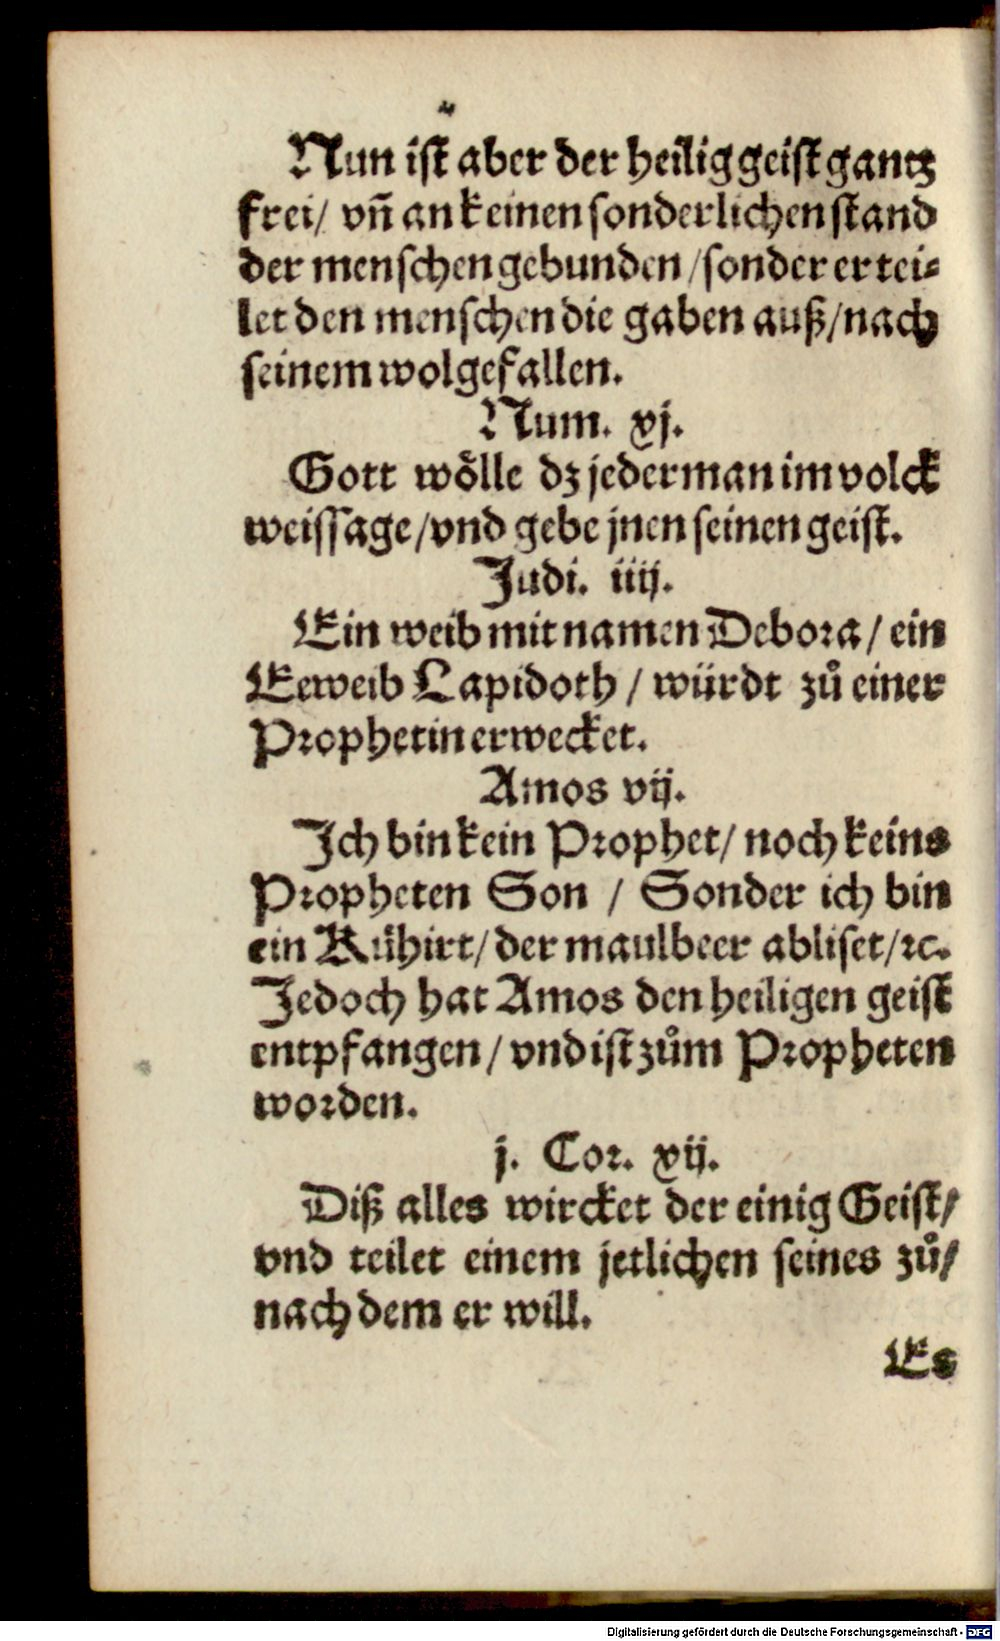 Nun ist aber der heilig geist gantz
frei/ vñ an keinen sonderlichen stand
der menschen gebunden/ sonder er tei⸗
let den menschen die gaben auß/ nach
seinem wolgefallen.
Num. xj.
Gott woͤlle dz jederman im volck
weissage/ vnd gebe jnen seinen geist.
Judi. iiij.
Ein weib mit namen Debora/ ein
Eeweib Lapidoth/ würdt zů einer
Prophetin erwecket.
Amos vij.
Ich bin kein Prophet/ noch keins
Propheten Son/ Sonder ich bin
ein Kühirt/ der maulbeer abliset/ ꝛc.
Jedoch hat Amos den heiligen geist
entpfangen/ vnd ist zům Propheten
worden.
j. Cor. xij.
Diß alles wircket der einig Geist/
vnd teilet einem jetlichen seines zů/
nach dem er will.
Es
Digitalisierung gefördert durch die Deutsche Forschungsgemeinschaft - DFG